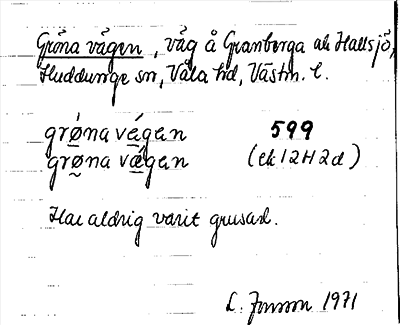 Gröna vägen, väg å Granberga ah Hallsjö,
Huddunge sn, Våla hd, Västm. l.
grø̀na vǽgan 599
grøna vǽgan (ek 12H2d)
Har aldrig varit grusad.
L. Jonsson 1971